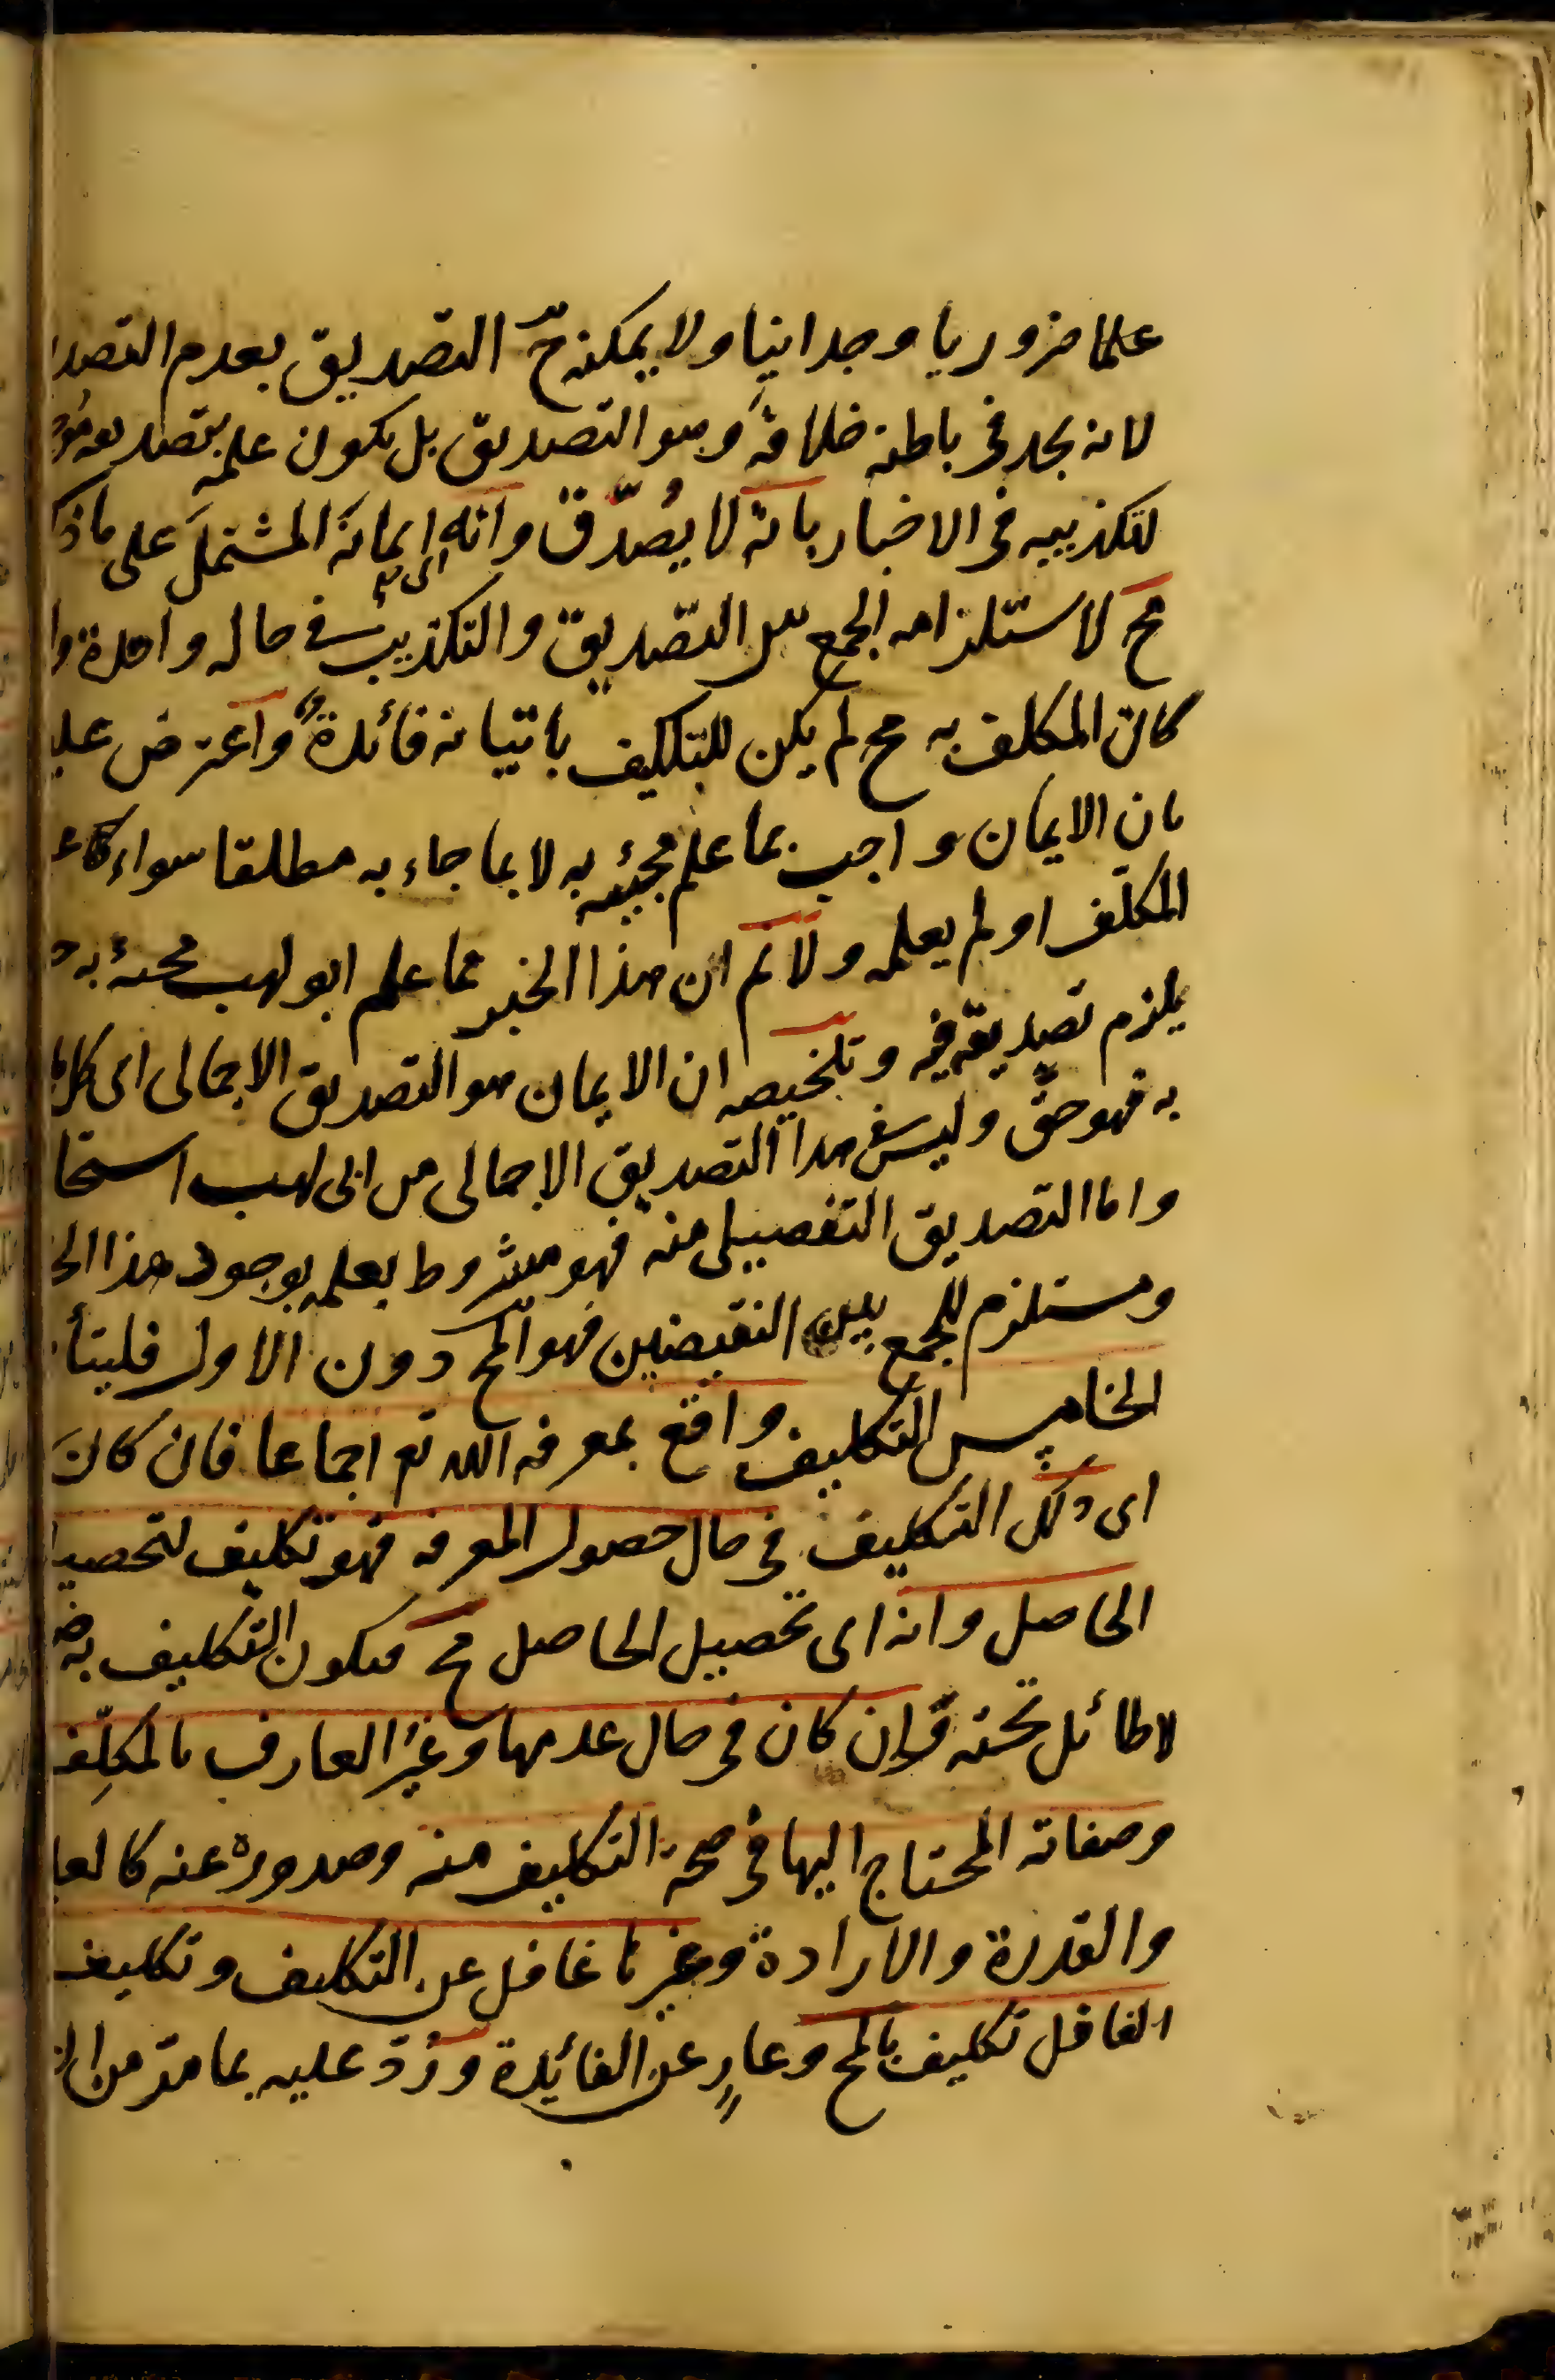 علما ضروريا وجدانيا ولا يمكنه ح التصديق بعدم التصد
لانه يجد فى باطنه خلافه وهو التصديق بل يكون علمه بتصديقه
لتكذيبه فى الاخبار بانه لا يُصدّق وانه اى ايمانه المشتمل على ما ذك
مح لاستلزامه الجمع بين التصديق والتكذيب فى حالة واحدة وا
كان المكلف به مح لم يكن للتكليف باتيانه فائدة واعترض عليه
بان الايمان واجب بما علم مجيئه به لا بما جاء به مطلقا سواء
المكلف او لم يعلمه ولا نم ان هذا الخبر مما علم ابو لهب مجيئه به
يلزم تصديقه فيه وتلخيصه ان الايمان هو التصديق الاجمالى اى كل
به فهو حق وليس فى هذا التصديق الاجمالى من ابى لهب استحا
واما التصديق التفصيلى منه فهو مشروط بعلمه بوجود هذا الخ
ومستلزم للجمع بين النقيضين فهو المح دون الاول فليتأ
الخامس التكليف واقع بمعرفة الله تع اجماعا فان كانَ
اى ذلك التكليف فى حال حصول المعرفة فهو تكليف لتحصيل
الحاصل وانه اى تحصيل الحاصل مح فيكون التكليف به
لا طائل تحته وان كان فى حال عدمها وغير العارف بالمكلِّف
وصفاته المحتاج اليها فى صحة التكليف منه وصدوره عنه كالعلم
والقدرة والارادة وغيرها غافل عن التكليف وتكليف
الغافل تكليف بالمح وعارٍ عن الفائدة ورُدّ عليه بما مر من ان